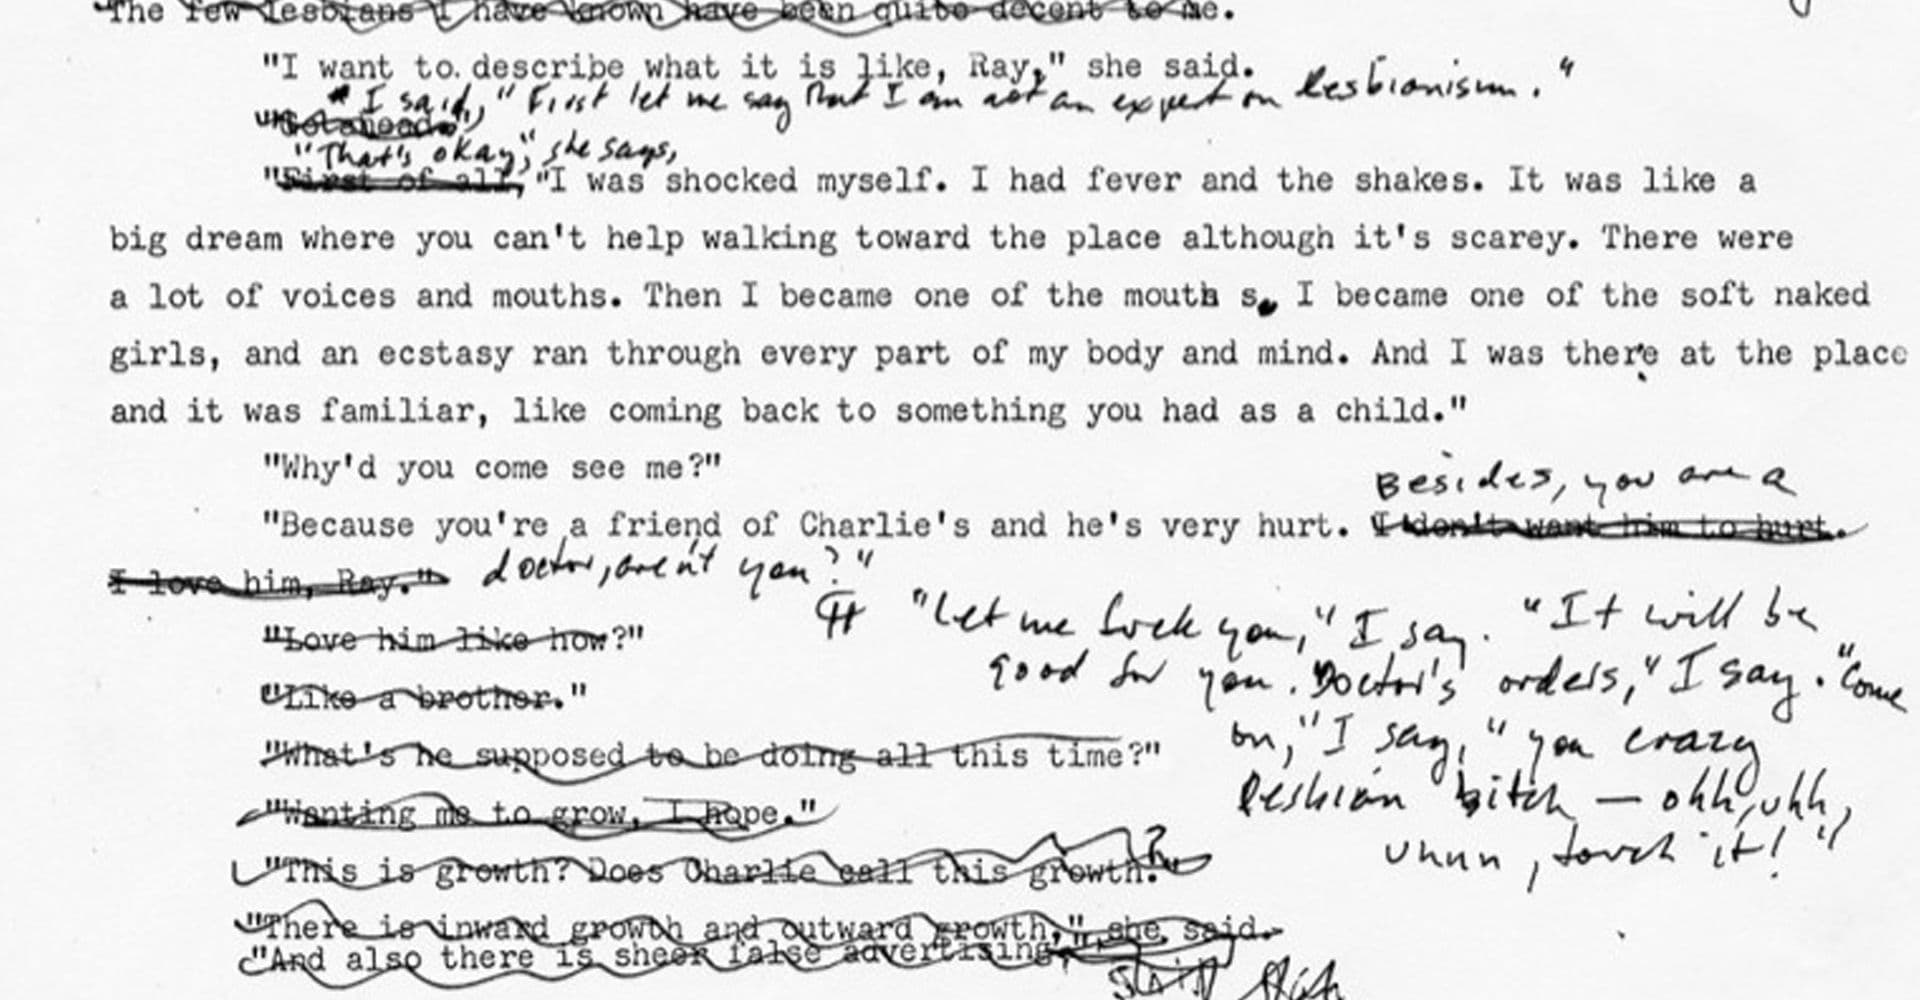 The few lesbians I have known have been quite decent to me.
"I want to describe what it is like, Ray," she said.
" I said, " First let me say that I am not an expert on lesbianism. "
"Go ahead."
"That's okay," she says,
"First of all, "I was shocked myself. I had fever and the shakes. It was like a
big dream where you can't help walking toward the place although it's scarey. There were
a lot of voices and mouths. Then I became one of the mouth s. I became one of the soft naked
girls, and an ecstasy ran through every part of my body and mind. And I was there at the place
and it was familiar, like coming back to something you had as a child."
"Why'd you come see me?"
Besides, you are a
"Because you're a friend of Charlie's and he's very hurt. I don't want him to hurt.
I love him, Ray." doctor, aren't you?"
"Let me fuck you," I say. "It will be
"Love him like how?"
good for you. Doctor's orders," I say. "Come
"Like a brother."
on," I say, "you crazy
"What's he supposed to be doing all this time?"
lesbian bitch — ohh, uhh,
"Wanting me to grow, I hope."
uhnn, touch it!"
"This is growth? Does Charlie call this growth?"
"There is inward growth and outward growth," she said.
"And also there is sheer false advertising,